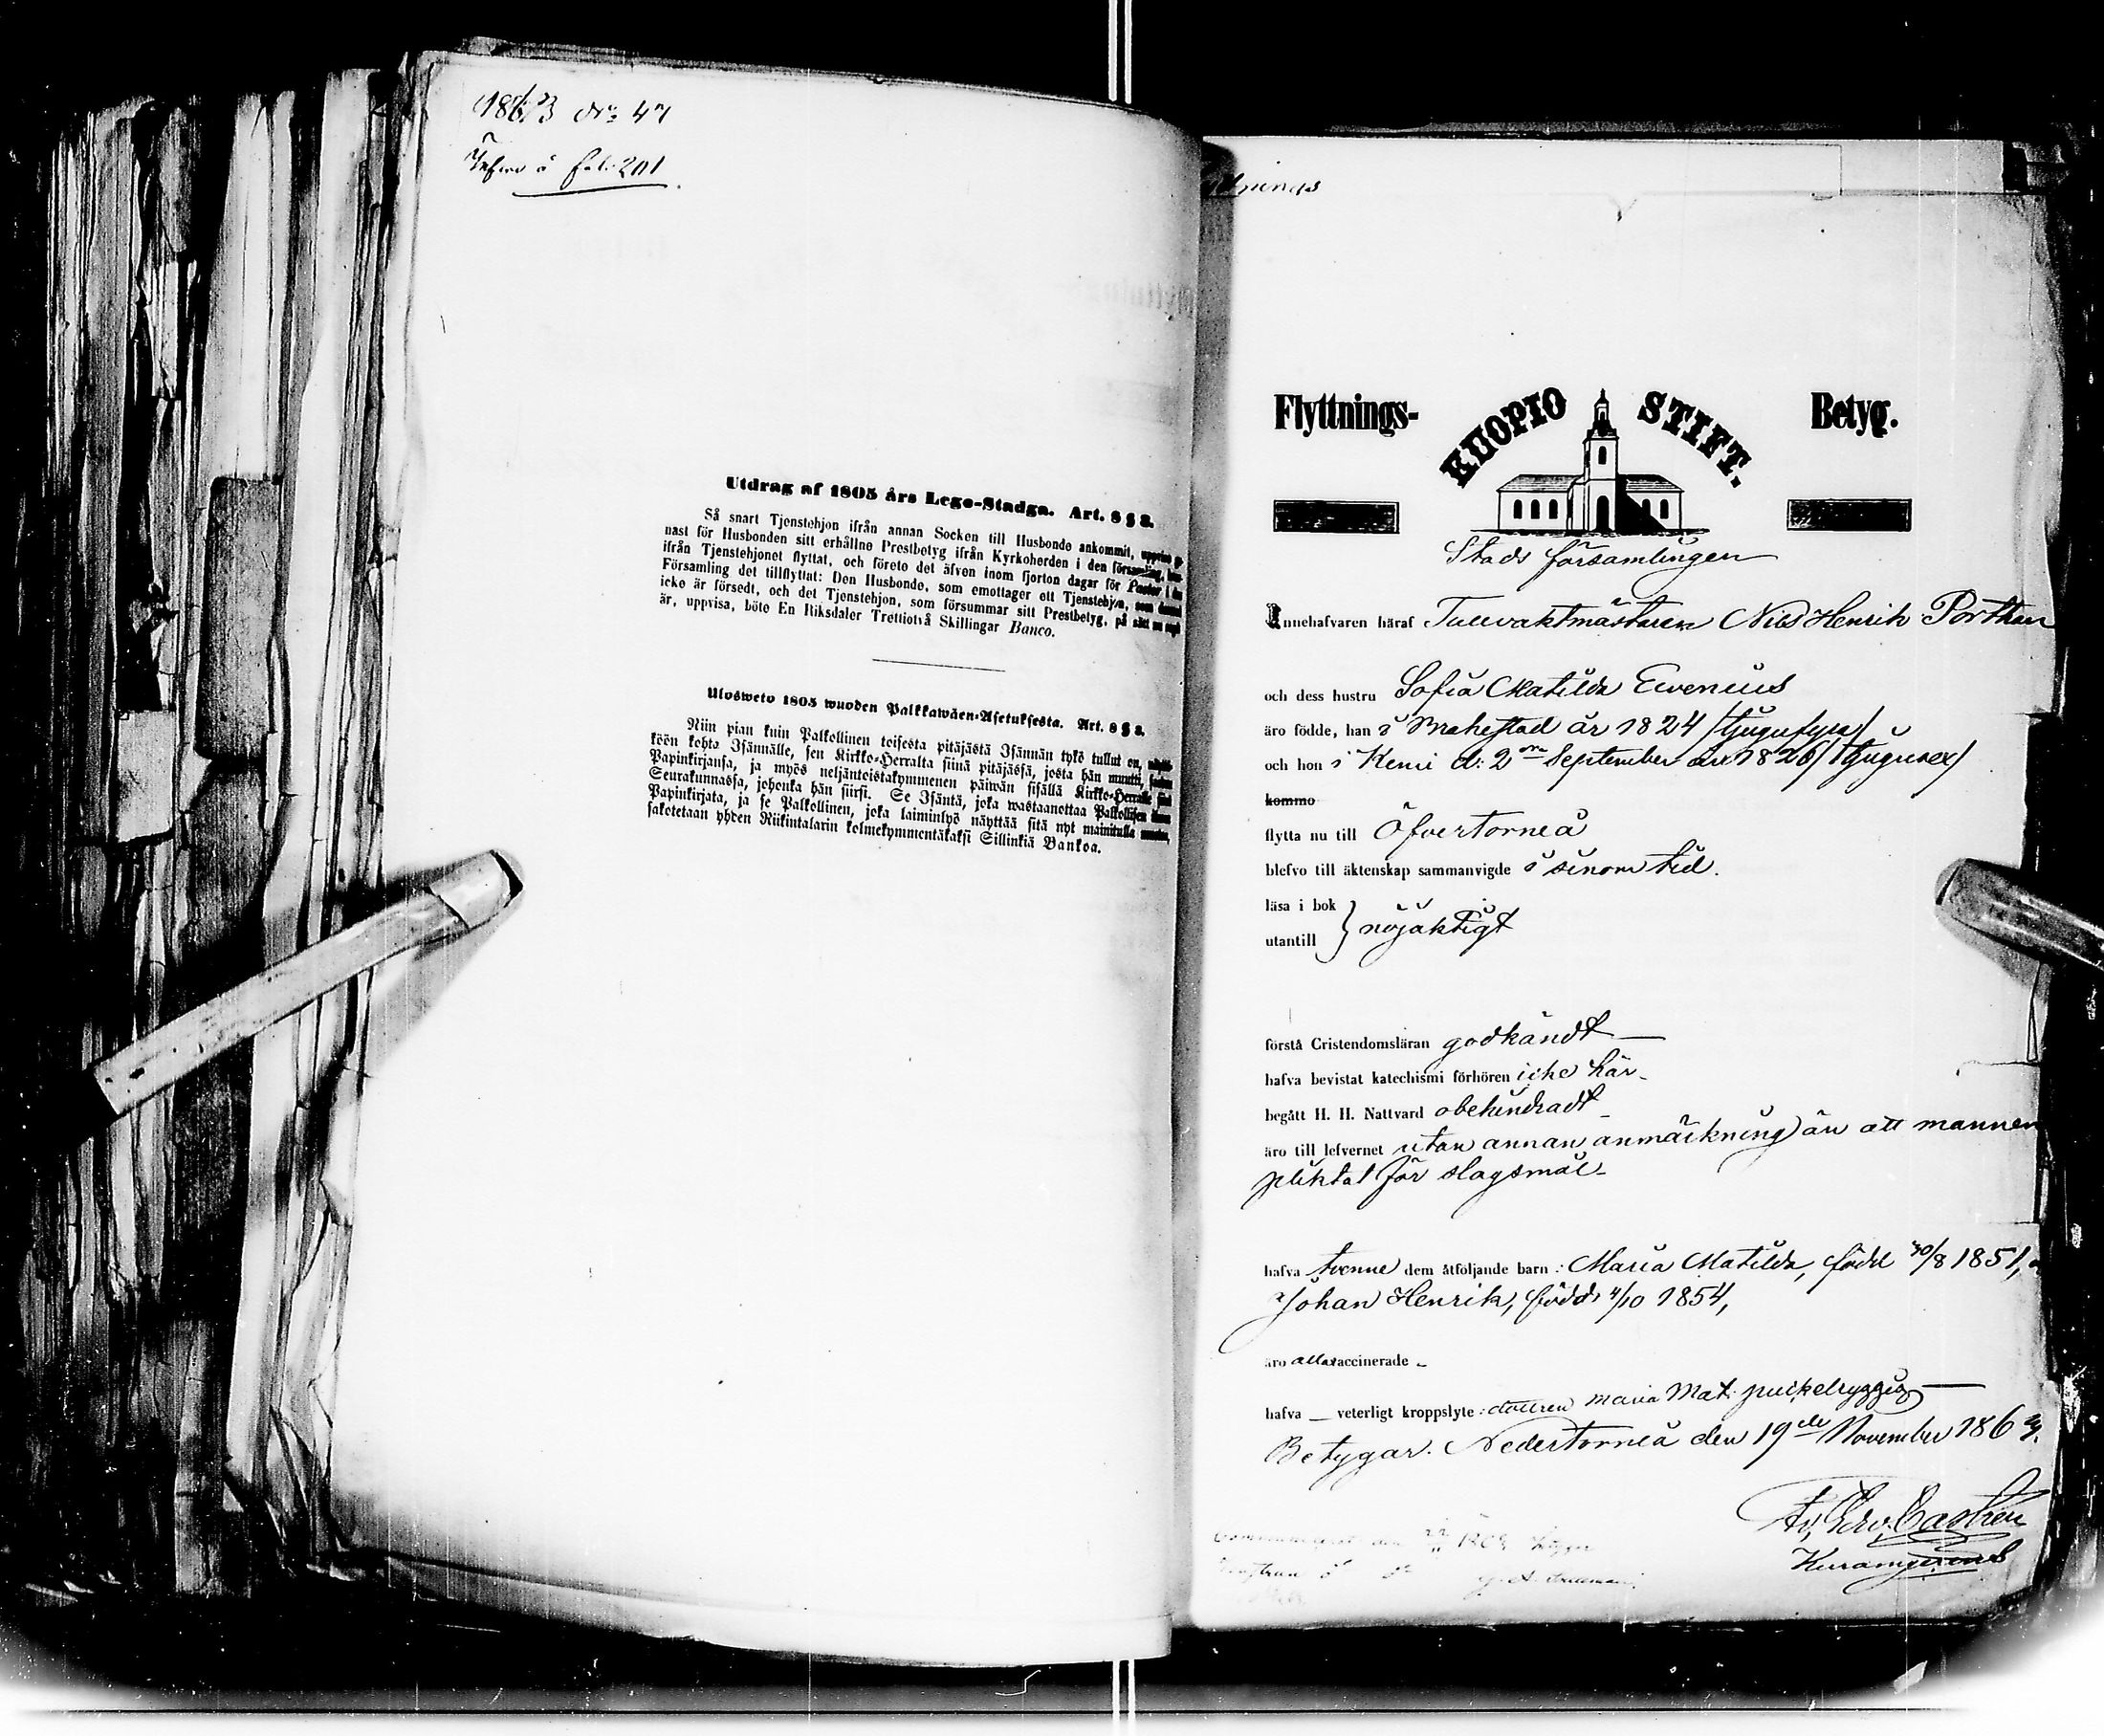 1863 No 47
Införd å fol: 201
Utdrag af 1805 års Lego-Stadga. Art. 8 § 3.
Så snart Tjenstehjon ifrån annan Socken till Husbonde ankommit, uppvise ge-
nast för Husbonden sitt erhållne Prestbetyg ifrån Kyrkoherden i den församling,
ifrån Tjenstehjonet flyttat, och förete det äfven inom fjorton dagar för Pastor i den
Församling det tillflyttat: Den Husbonde, som emottager ett Tjenstehjon, som
icke är försedt, och det Tjenstehjon, som försummar sitt Prestbetyg, på sätt nu
är, uppvisa, böte En Riksdaler Trettiotvå Skillingar Banco.
Ulosweto 1805 wuoden Palkkawäen-Asetuksesta. Art. 8 § 3.
Niin pian kuin Palkollinen toisesta pitäjästä Isännän tykö tullut on,
köön kohta Isännälle, sen Kirkko-Herralta siinä pitäjässä, josta hän muutti,
Papinkirjansa, ja myös neljäntoistakymmenen päiwän sisällä Kirkko-Herralle
Seurakunnassa, johonka hän siirsi. Se Isäntä, joka wastaanottaa Palkollisen
Papinkirjata, ja se Palkollinen, joka laiminlyö näyttää sitä nyt mainitulla
sakotetaan yhden Riikintalarin kolmekymmentäkaksi Sillinkiä Bankoa.
Flyttnings- KUOPIO STIFT. Betyg.
Stads församlingen
Innehafvaren häraf Tullvaktmästaren Nils Henrik Porthan
och dess hustru Sofia Matilda Ewenius
äro födde, han i Brahestad år 1824 /tjugufyra/
och hon i Kemi d: 2en September år 1826 /tjugusex/
komme
flytta nu till Öfvertorneå
blefvo till äktenskap sammanvigde i sinom tid.
läsa i bok
utantill } nöjaktigt
förstå Cristendomsläran godkändt
hafva bevistat katechismi förhören icke här
begått H. H. Nattvard obehindradt
äro till lefvernet utan annan anmärkning än att mannen
pliktat för slagsmål
hafva tvenne dem åtföljande barn: Maria Matilda, född 30/8 1851,
Johan Henrik, född 4/10 1854,
äro alla vaccinerade
hafva veterligt kroppslyte: dottren Maria Mat: puckelryggig
Betygar. Nedertorneå den 19de November 1863.
Castren